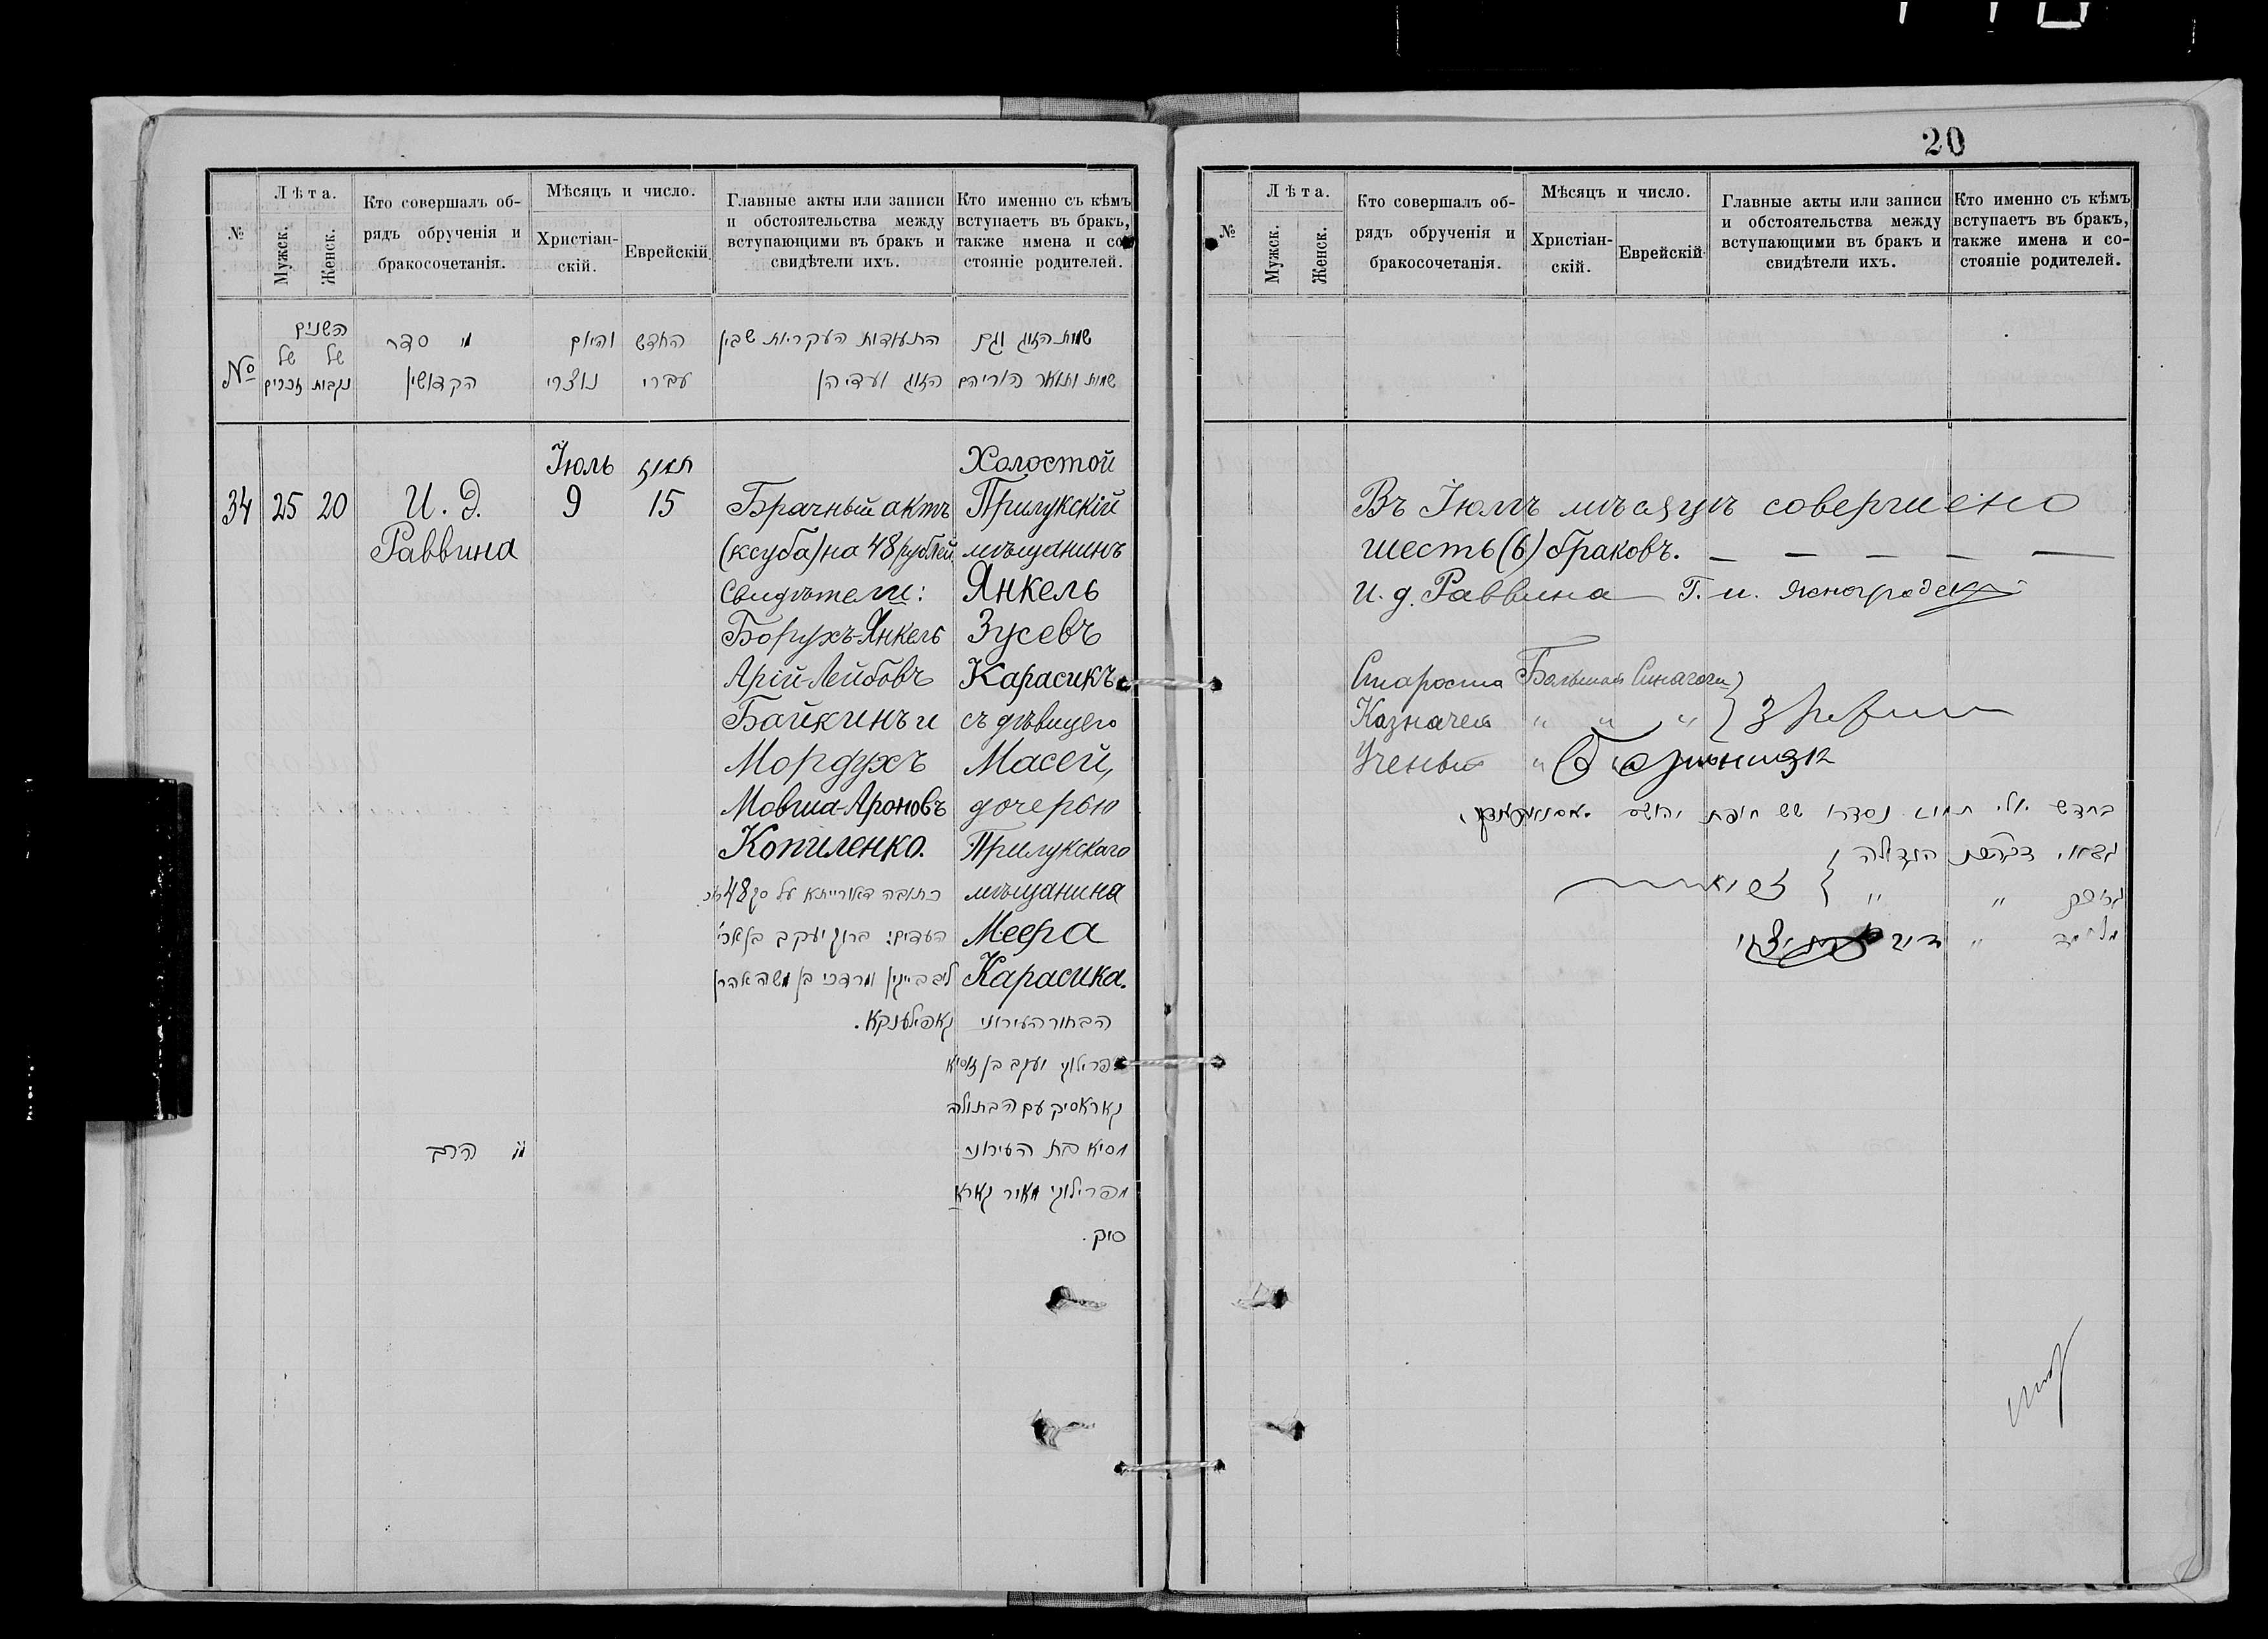 20
№
Лѣта.
Мужск.
Женск.
Кто совершалъ об-
рядъ обрученія и
бракосочетанія.
Мѣсяцъ и число.
Христіан-
скій.
Еврейскій.
Главные акты или записи
и обстоятельства между
вступающими въ бракъ и
свидѣтели ихъ.
Кто именно съ кѣмъ
вступаетъ въ бракъ,
также имена и со-
стояніе родителей.
№
השנים
של של
זכרים נקבות
מי סדר
הקדושין
החדש והיום
עברי נוצרי
התעודות העקריות שבין
הזוג ועדיהן
שמות הזוג וגם
שמות ותואר הוריהם
34
25
20
И. д.
Раввина
Іюль
9
תמוז
15
Брачный актъ
(ксуба) на 48 рублей.
Свидѣтели:
Борухъ-Янкель
Арій-Лейбовъ
Байкинъ и
Мордухъ
Мовша-Ароновъ
Копиленко.
כתובה דאורייתא על סך 48
העדים: ברוך יעקב בן ארי'
ליב בייקין ומרדכי בן משה אהרן
קאפילענקא.
Холостой
Прилукскій
мѣщанинъ
Янкель
Зусевъ
Карасикъ
съ дѣвицею
Масей,
дочерью
Прилукскаго
мѣщанина
Меера
Карасика.
הבחור העירוני
מפרילוקי יעקב בן זוסיא
קאראסיק עם הבתולה
מסיא בת העירוני
מפרילוקי מאיר קארא
סיק.
הרב
№
Лѣта.
Мужск.
Женск.
Кто совершалъ об-
рядъ обрученія и
бракосочетанія.
Мѣсяцъ и число.
Христіан-
скій.
Еврейскій
Главные акты или записи
и обстоятельства между
вступающими въ бракъ и
свидѣтели ихъ.
Кто именно съ кѣмъ
вступаетъ въ бракъ,
также имена и со-
стояніе родителей.
Въ Іюлѣ мѣсяцѣ совершено
шесть (6) браковъ. — — — — —
И. д. Раввина Г. И. Ясногродскій
Староста Большой Синагоги
Казначей " " "
Ученый " "
בחדש יולי תמוז נסדרו שש חופות
גבאי דביהכנ הגדולה
" "
"